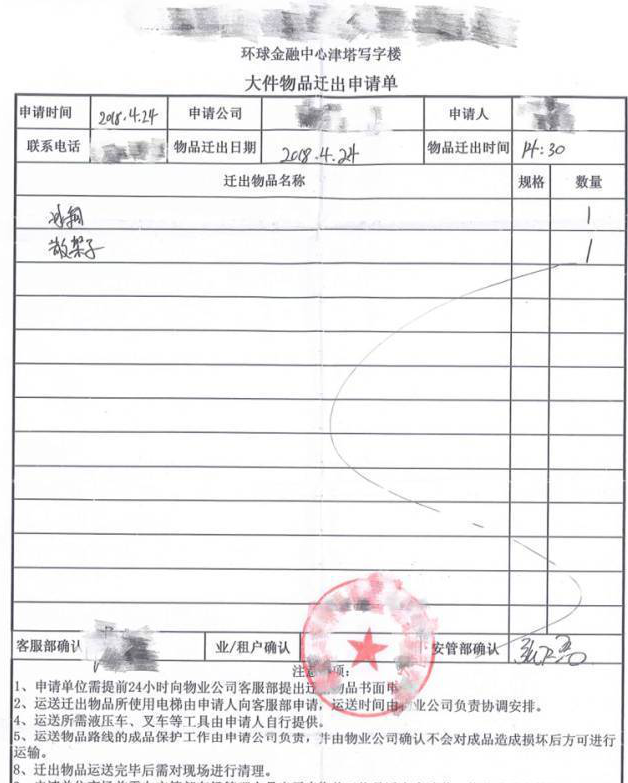 环球金融中心津塔写字楼
大件物品迁出申请单
申请时间 2018.4.24 申请公司 申请人
联系电话 物品迁出日期 2018.4.24 物品迁出时间 14:30
迁出物品名称 规格 数量
冰箱 1
散架子 1
客服部确认 业/租户确认 安管部确认
注 项:
1、申请单位需提前24小时向物业公司客服部提出迁 物品书面申
2、运送迁出物品所使用电梯由申请人向客服部申请,运送时间由 业公司负责协调安排。
4、运送所需液压车、叉车等工具由申请人自行提供。
5、运送物品路线的成品保护工作由申请公司负责,并由物业公司确认不会对成品造成损坏后方可进行
运输。
8、迁出物品运送完毕后需对现场进行清理。